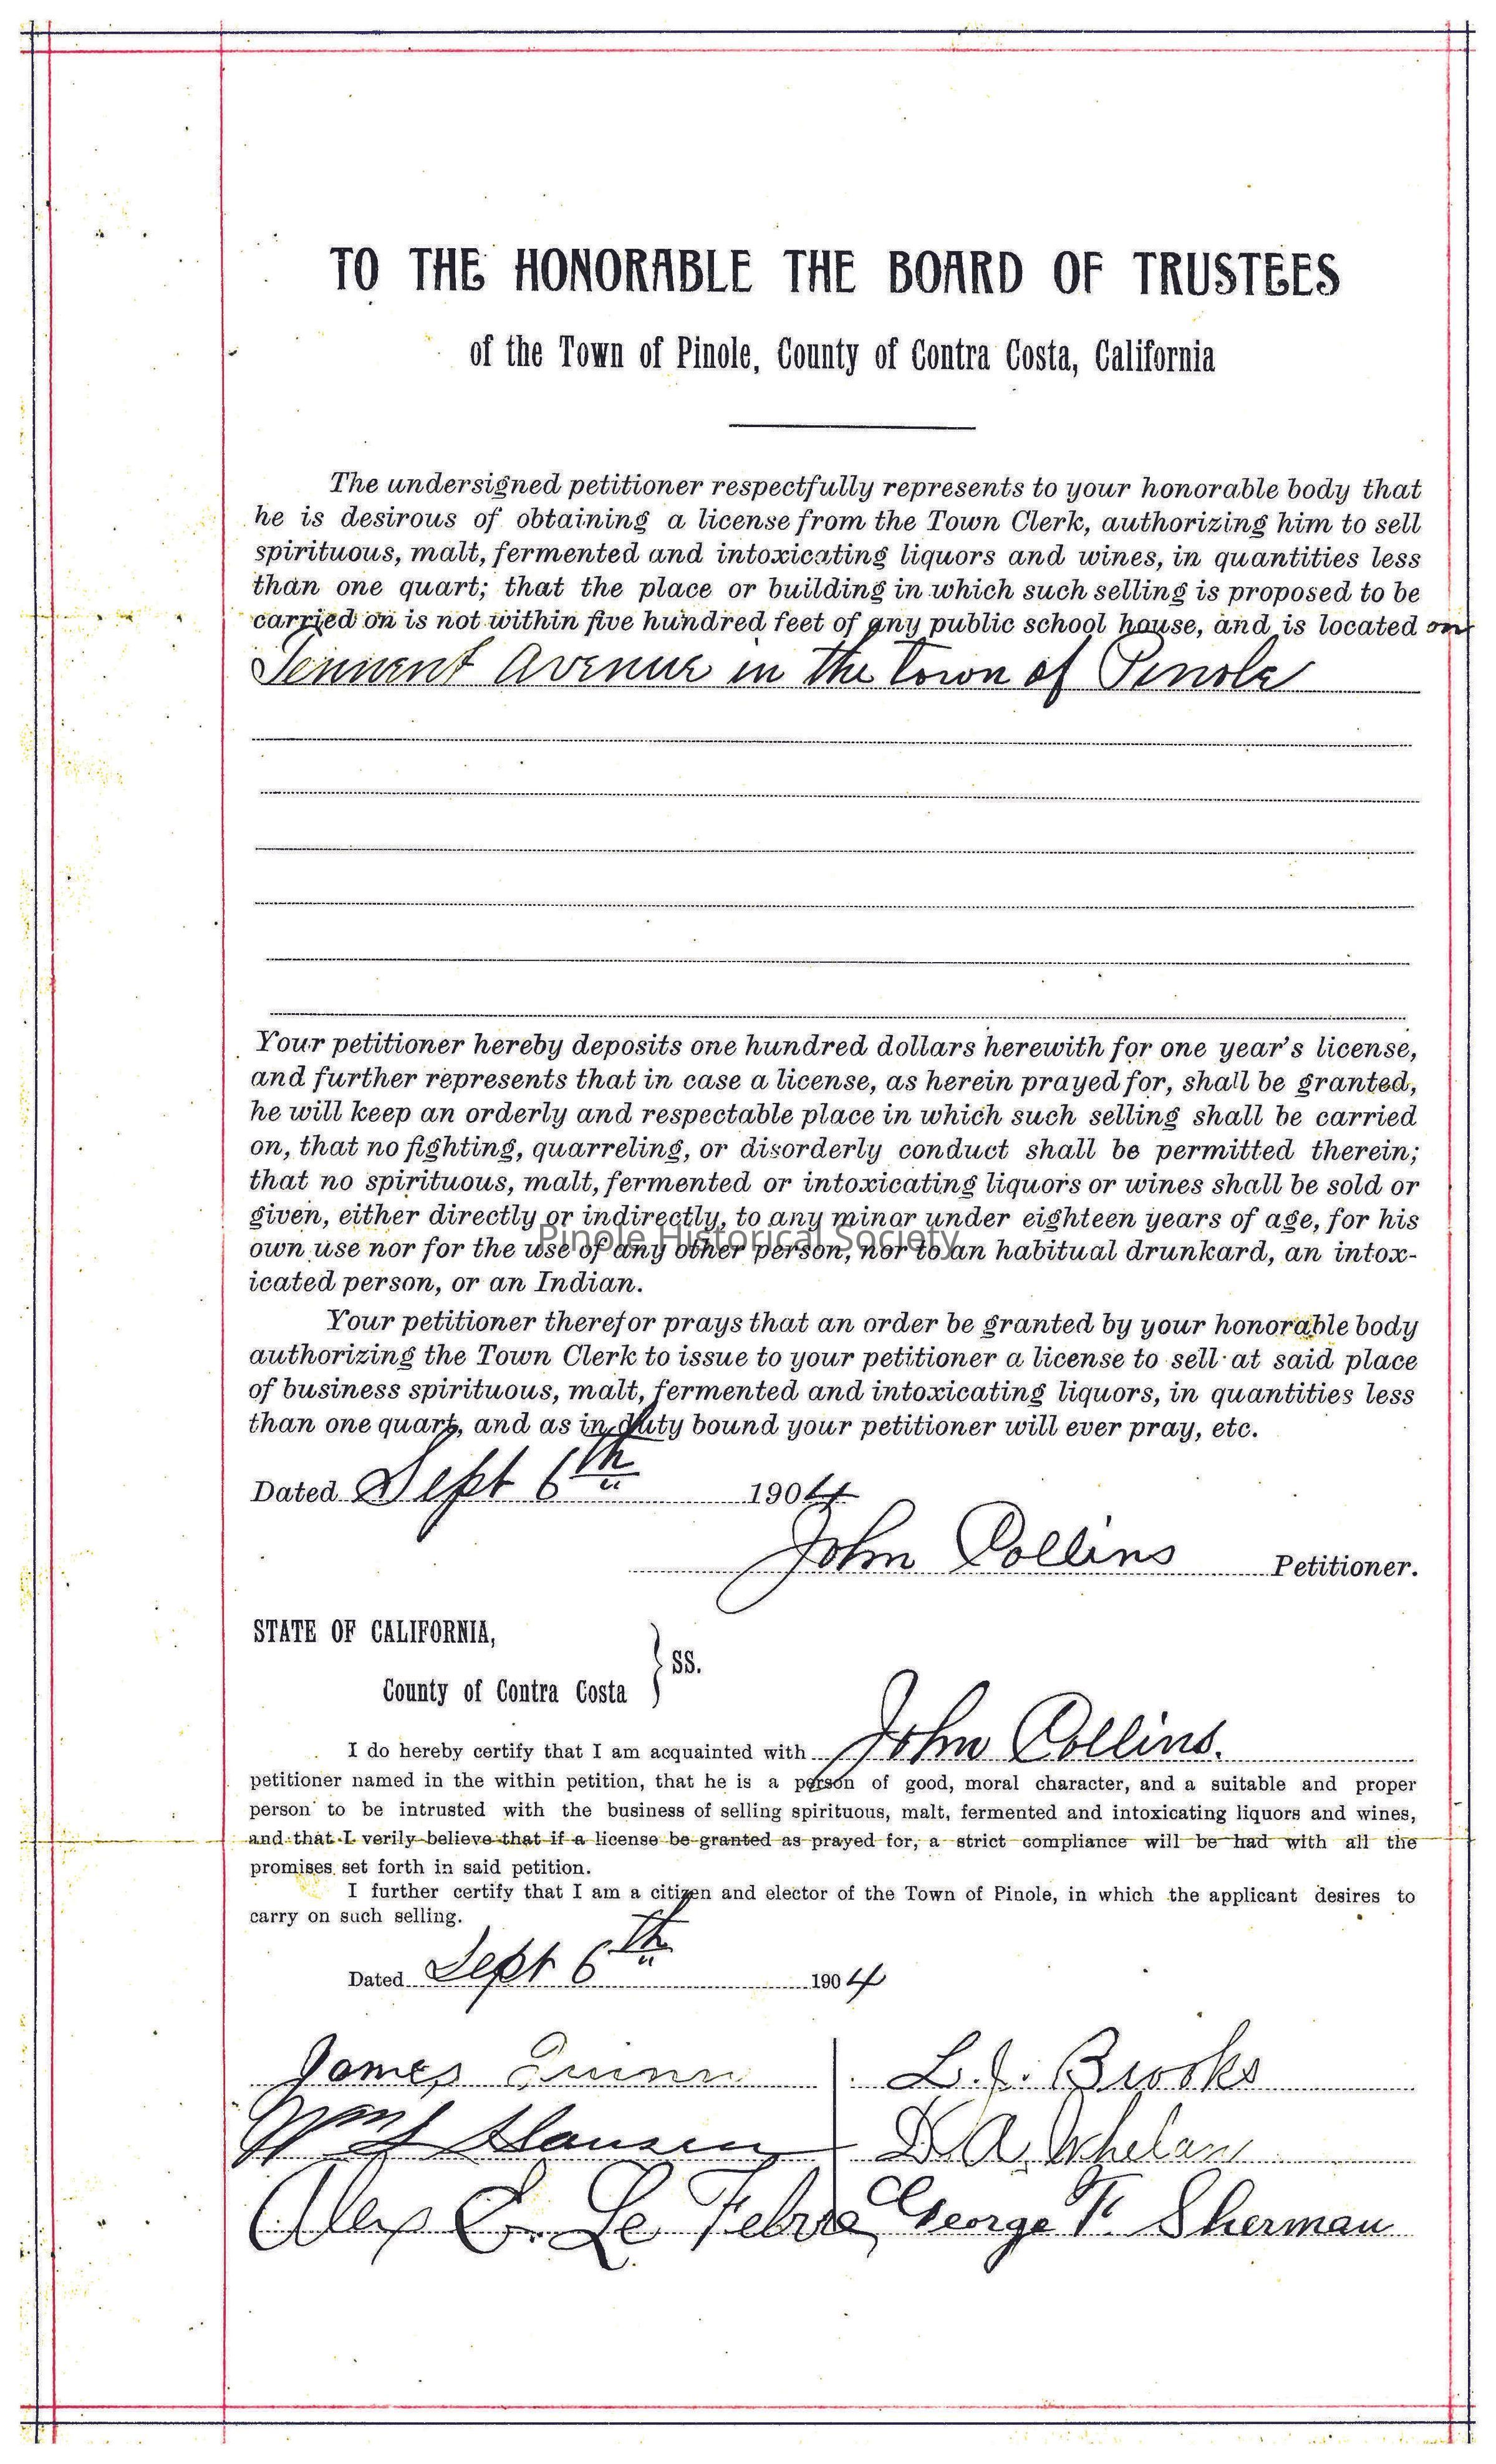 TO THE HONORABLE THE BOARD OF TRUSTEES
of the Town of Pinole, County of Contra Costa, California
The undersigned petitioner respectfully represents to your honorable body that
he is desirous of obtaining a license from the Town Clerk, authorizing him to sell
spirituous, malt, fermented and intoxicating liquors and wines, in quantities less
than one quart; that the place or building in which such selling is proposed to be
carried on is not within five hundred feet of any public school house, and is located on
Tennent Avenue in the town of Pinole
Your petitioner hereby deposits one hundred dollars herewith for one year's license,
and further represents that in case a license, as herein prayed for, shall be granted,
he will keep an orderly and respectable place in which such selling shall be carried
on, that no fighting, quarreling, or disorderly conduct shall be permitted therein;
that no spirituous, malt, fermented or intoxicating liquors or wines shall be sold or
given, either directly or indirectly, to any minor under eighteen years of age, for his
Pinole Historical Society
own use nor for the use of any other person, nor to an habitual drunkard, an intox-
icated person, or an Indian.
Your petitioner therefor prays that an order be granted by your honorable body
authorizing the Town Clerk to issue to your petitioner a license to sell at said place
of business spirituous, malt, fermented and intoxicating liquors, in quantities less
than one quart, and as in duty bound your petitioner will ever pray, etc.
Dated Sept 6th 1904
John Collins Petitioner.
STATE OF CALIFORNIA,
} SS.
County of Contra Costa
I do hereby certify that I am acquainted with John Collins.
petitioner named in the within petition, that he is a person of good, moral character, and a suitable and proper
person to be intrusted with the business of selling spirituous, malt, fermented and intoxicating liquors and wines,
and that I verily believe that if a license be granted as prayed for, a strict compliance will be had with all the
promises set forth in said petition.
I further certify that I am a citizen and elector of the Town of Pinole, in which the applicant desires to
carry on such selling.
Dated Sept 6th 1904
James Quinn L. J. Brooks
Wm J Hansen D. A. Whelan
Alex E. Le Febvre George F. Sherman